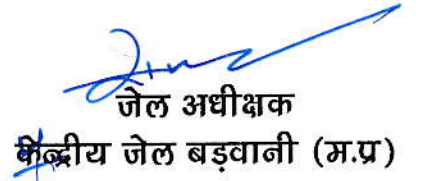 जेल अधीक्षक
केन्द्रीय जेल बड़वानी (म.प्र)